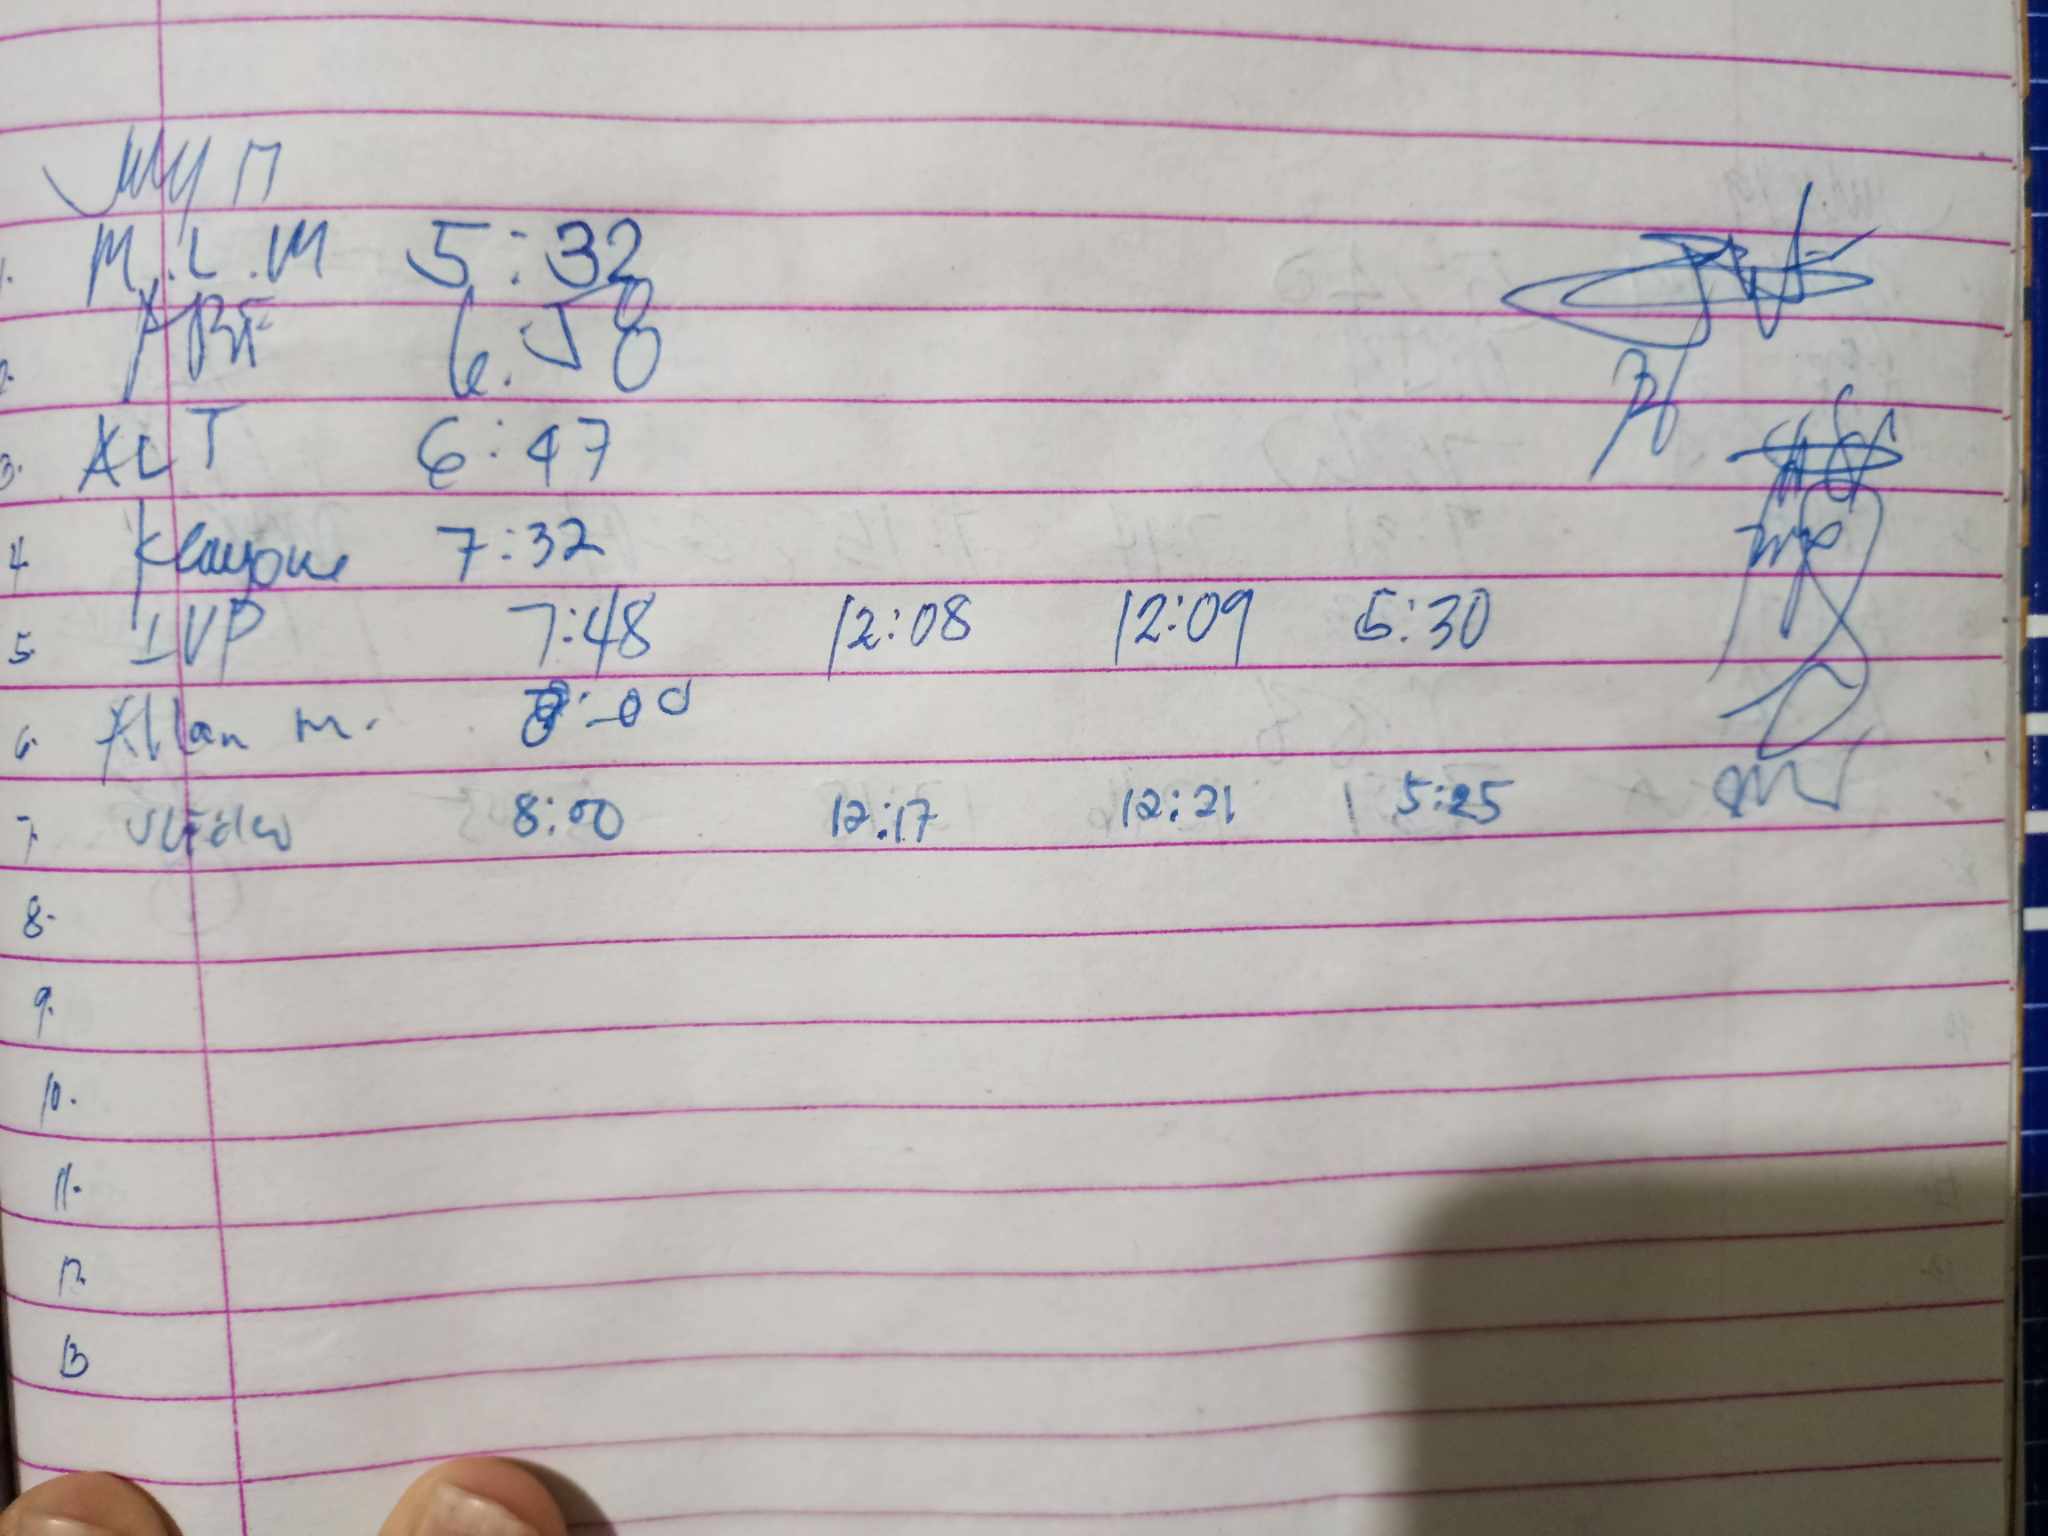 July 17
1. M.L.M 5:32
2. ABF 6.58
3. ALT 6:47
4 7:32
5. IVP 7:48 12:08 12:09 5:30
6. Allan M. 8:00
7. 8:00 12:17 12:21 5:25
8.
9.
10.
11.
12.
13